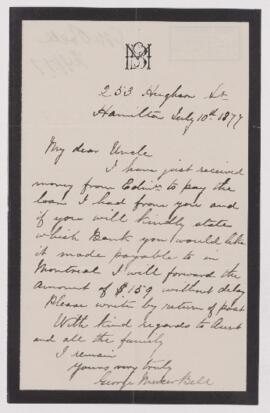 253 Hughson St
Hamilton July 10th 1877
My dear Uncle
I have just received
money from Edinr. to pay the
loan I had from you and
if you will kindly state
which Bank you would like
it made payable to in
Montreal I will forward the
amount of $159 without delay
Please write by return of post
With kind regards to Aunt
and all the family
I remain
yours very truly
George Bell